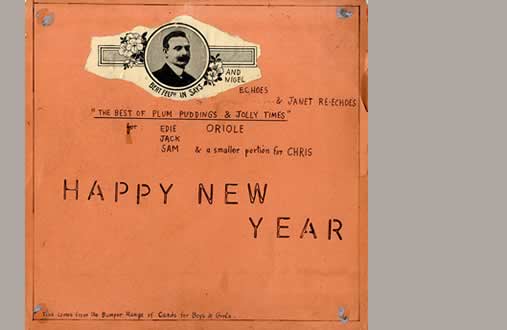 BERT FEEPH IN SAYS
AND
NIGEL
ECHOES
& JANET RE-ECHOES
"THE BEST OF PLUM PUDDINGS & JOLLY TIMES"
for EDIE ORIOLE
JACK
SAM & a smaller portion for CHRIS
HAPPY NEW
YEAR
This comes from the Bumper Range of Cards for Boys & Girls.